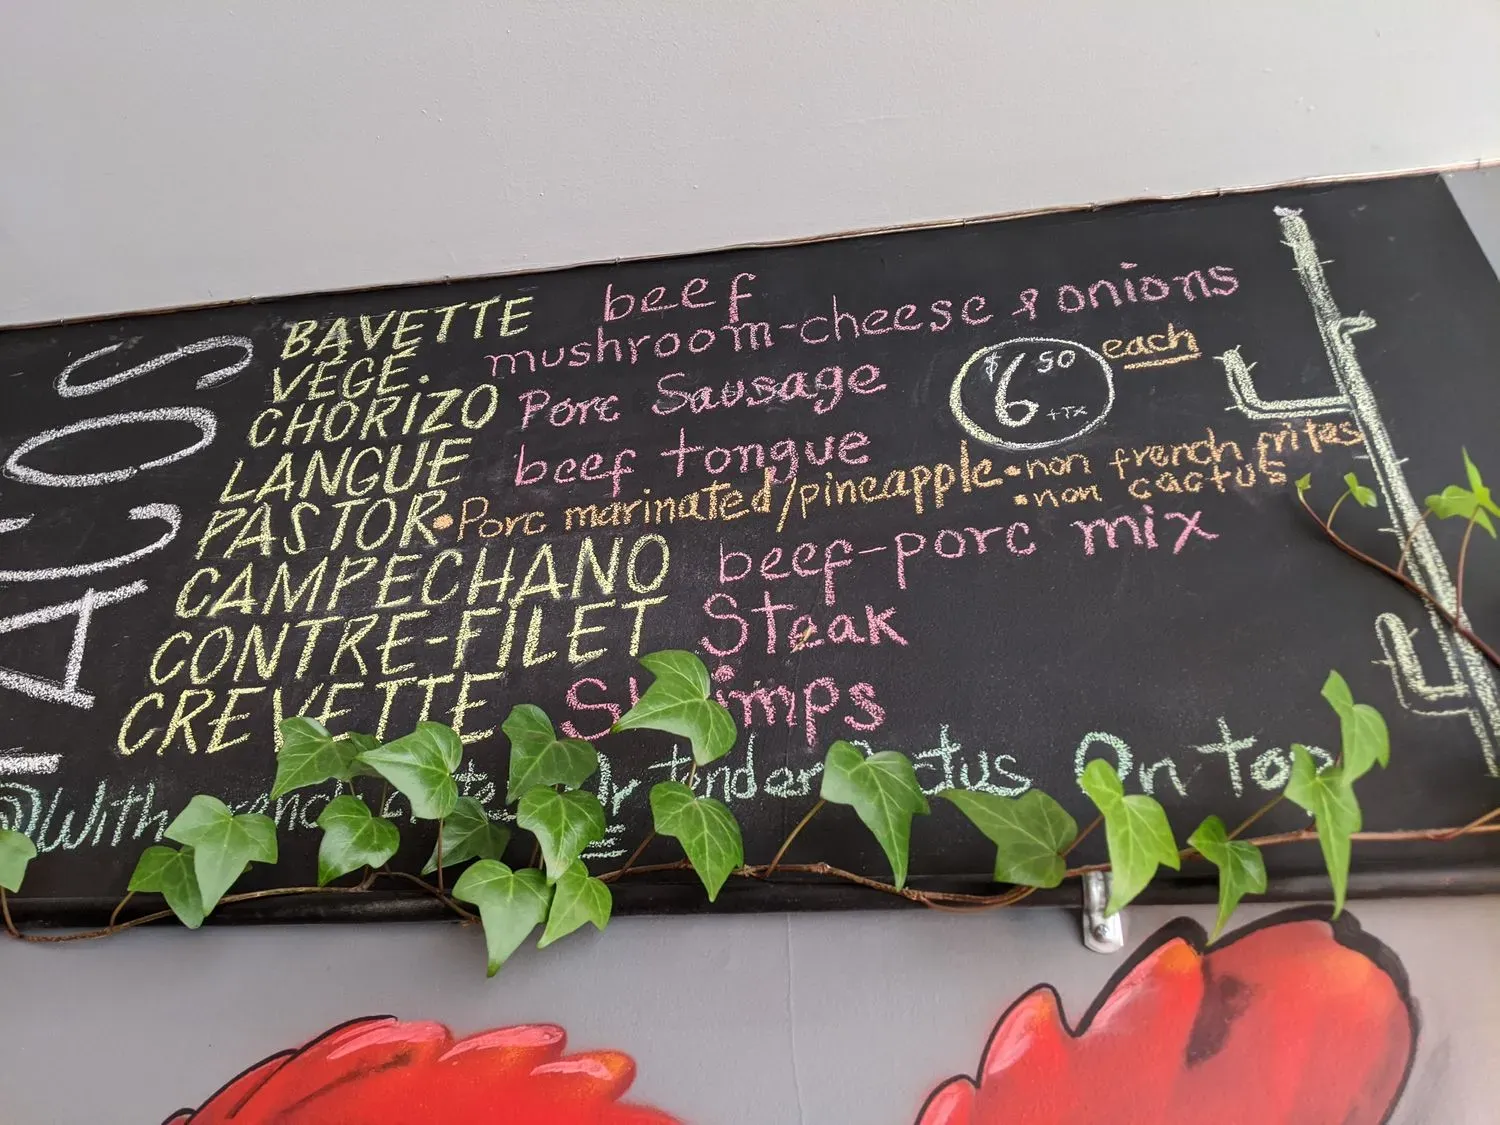 TACOS
BAVETTE beef
VÉGÉ. mushroom-cheese & onions
CHORIZO Porc Sausage
$6.50 +TX each
LANGUE beef tongue
PASTOR • Porc marinated/pineapple • non french frites
• non cactus
CAMPECHANO beef-porc mix
CONTRE-FILET Steak
CREVETTE Shrimps
With Or tender Cactus On top